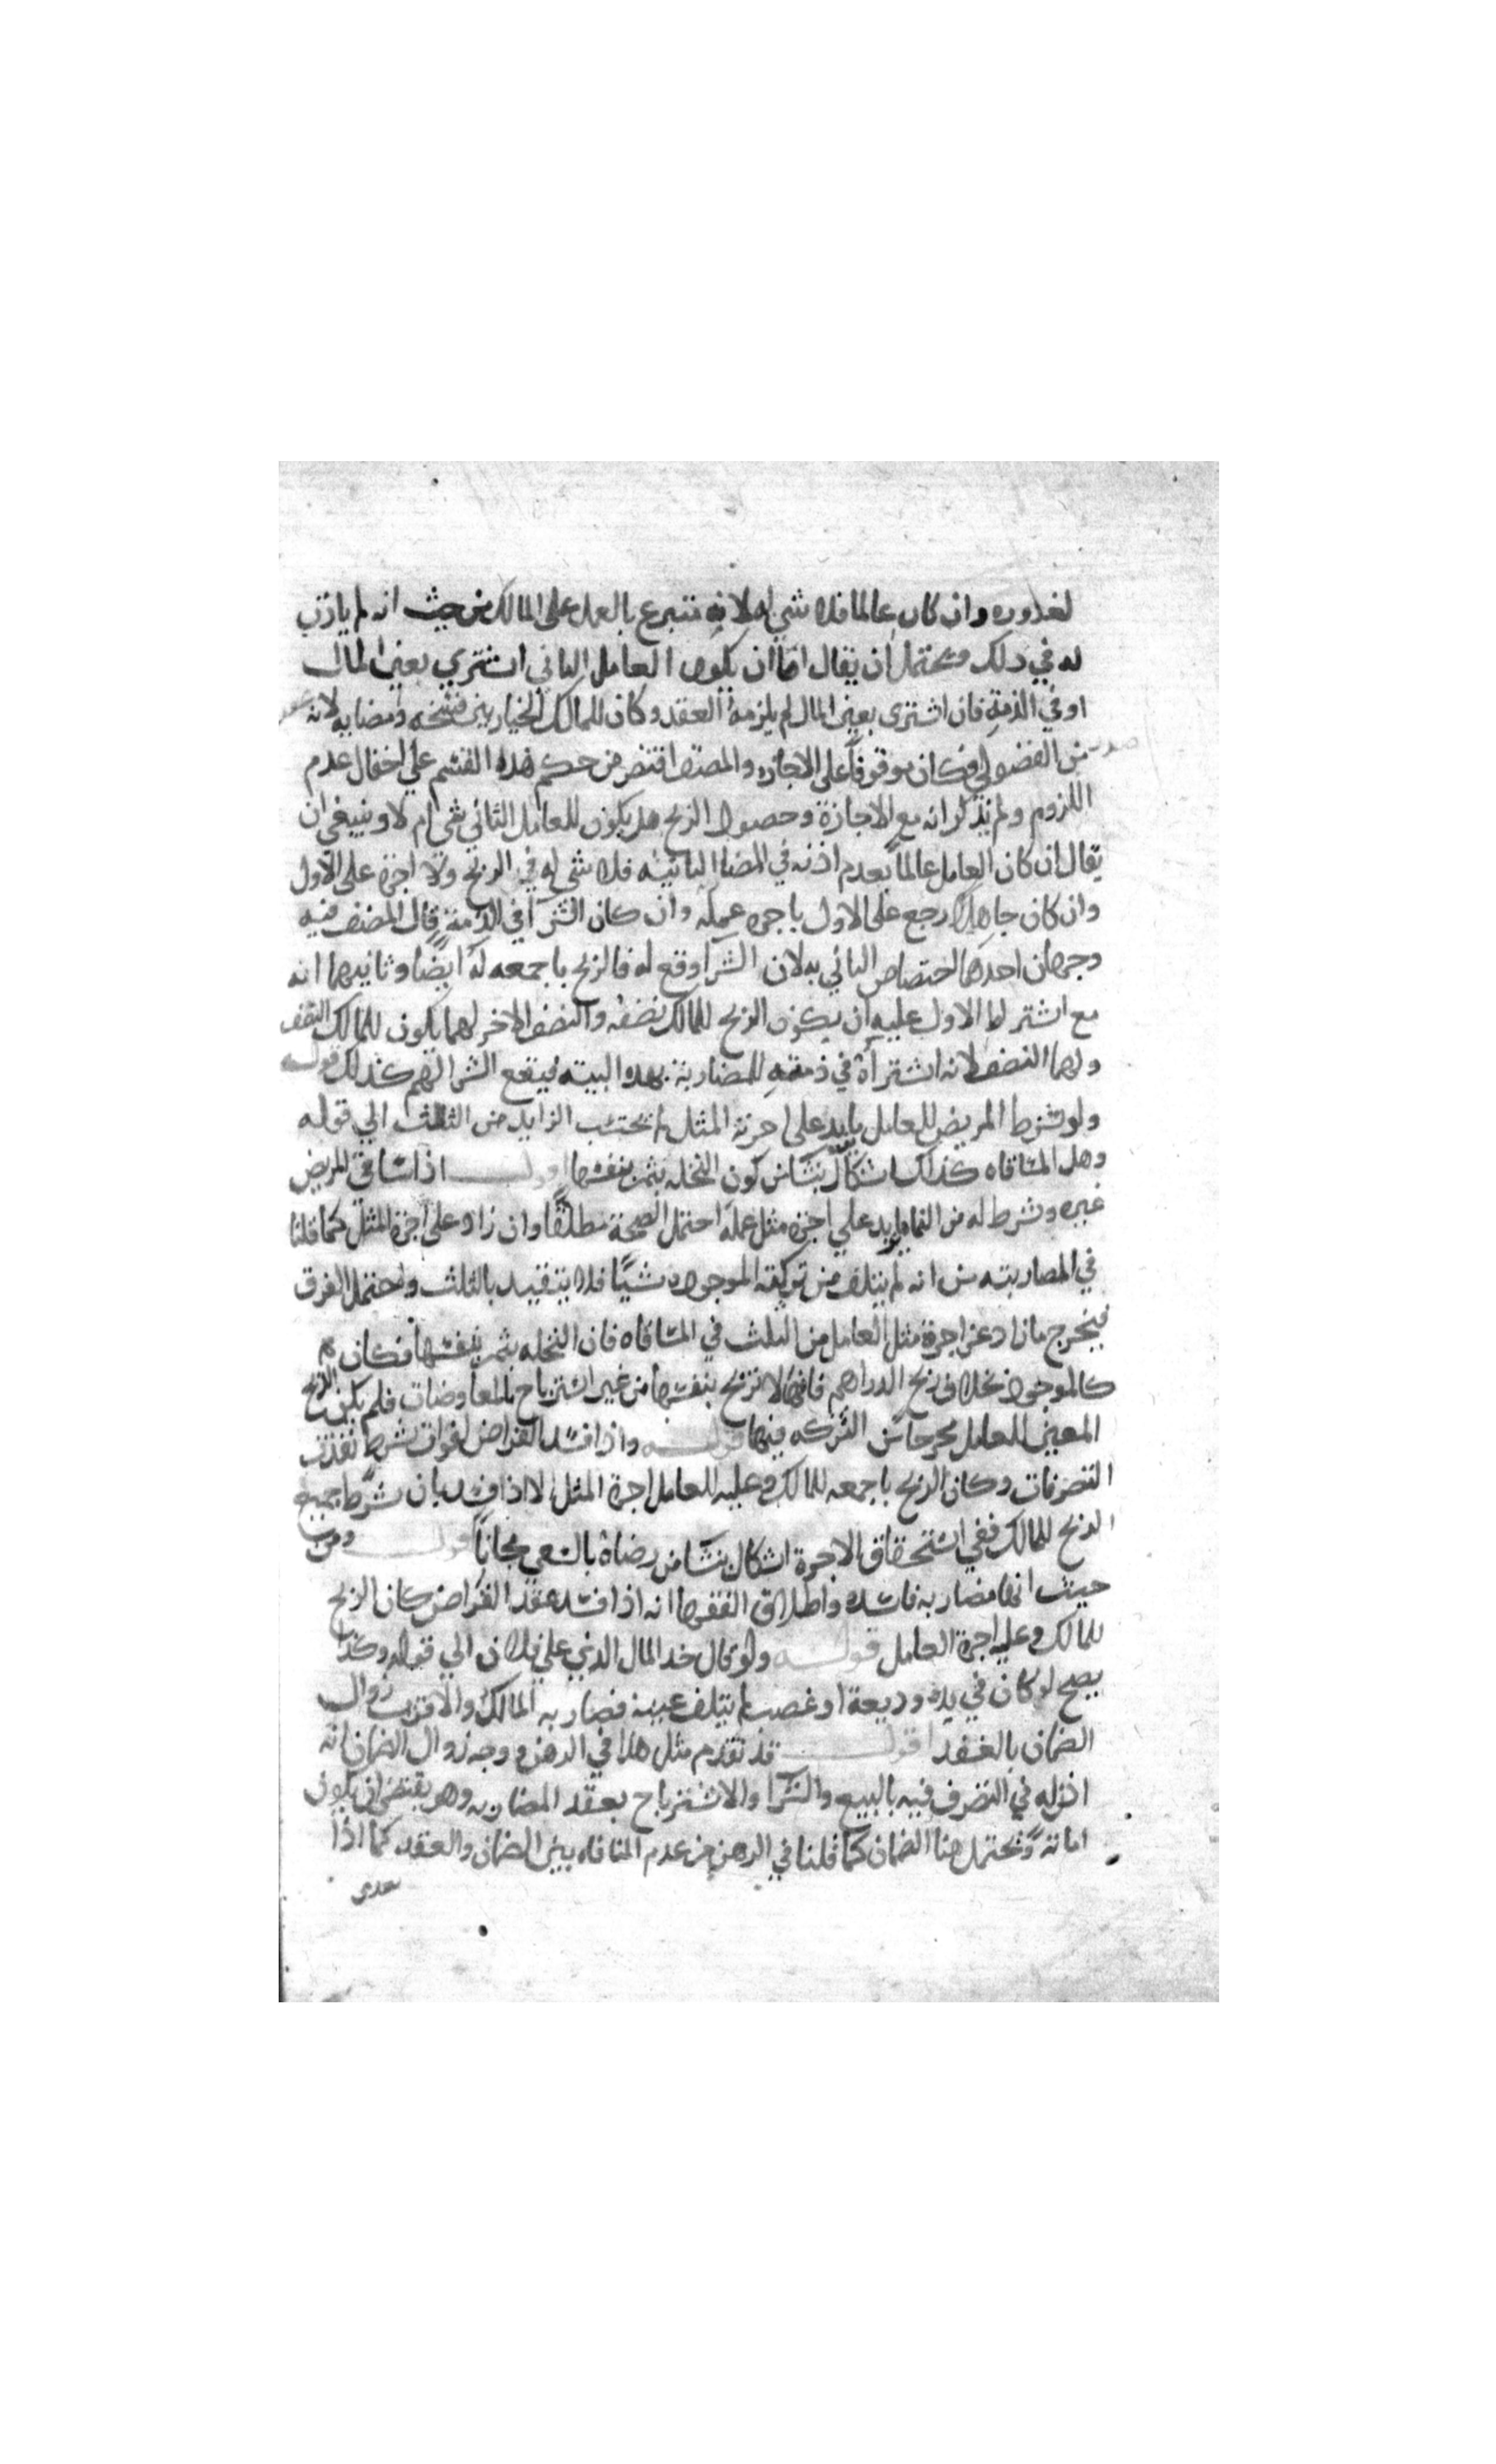 لغروره وان كان عالما فلا شي له لانه متبرع بالعمل على المالك من حيث انه لم ياذن
له في ذلك ويحتمل ان يقال اما ان يكون العامل الثاني اشتري بعين المال
او في الذمة فان اشترى بعين المال لم يلزمه العقد وكان للمالك الخيار بين فسخه وامضايه لانه عقد
صدر من الفضولي فكان موقوفا على الاجازه والمصنف اقتصر من حكم هذا القسم علي احتمال عدم
اللزوم ولم يذكر انه مع الاجازة وحصول الربح هل يكون للعامل الثاني شي ام لا وينبغي ان
يقال ان كان العامل عالما بعدم اذنه في المضاربة الثانيه فلا شي له في الربح ولا اجرة على الاول
وان كان جاهلا رجع على الاول باجره عمله وان كان الشرا في الذمة قال المصنف فيه
وجهان احدهما اختصاص الثاني به لان الشرا وقع له فالربح باجمعه له ايضا وثانيهما انه
مع اشتراط الاول عليه ان يكون الربح للمالك نصفه والنصف الاخر لهما يكون للمالك النصف
ولهما النصف لانه اشتراه في ذمته للمضاربة بهذه النيته فيقع الشرا لهم كذلك قوله
ولو شرط المريض للعامل ما يزيد على اجرة المثل لم يحتسب الزايد من الثلث الي قوله
وهل المساقاه كذلك اشكال ينشا من كون النخله يثمر بنفسها اقول اذا ساقي المريض
غيره وشرط له من النما ما يزيد علي اجره مثل عمله احتمل الصحة مطلقا وان زاد على اجرة المثل كما قلنا
في المضاربته من انه لم يتلف من تركته الموجوده شيا فلا يتقيد بالثلث واحتمل الفرق
فيخرج ما زاد عن اجرة مثل العامل من الثلث في المساقاه فان النخله يثمر بنفسها فكان
كالموجود بخلاف ربح الدراهم فانها لا تربح بنفسها من غير استرباح بالمعاوضات فلم يكن الربح
المعين للعامل مخرجا من التركه فيها قوله واذا فسد القراض لفوات شرط نفذت
التصرفات وكان الربح باجمعه للمالك وعليه للعامل اجرة المثل الا اذا فسد بان شرط جميع
الربح للمالك ففي استحقاق الاجرة اشكال ينشا من رضاه بالسعي مجانا قوله ومن
حيث انها مضاربه فاسده واطلاق الفقها انه اذا فسد عقد القراض كان الربح
للمالك وعليه اجرة العامل قوله ولو قال خذ المال الذي علي فلان الي قوله وكذا
يصح لو كان في يده وديعة او غصب لم يتلف عينه فضاربه المالك والاقرب زوال
الضمان بالعقد اقول قد تقدم مثل هذا في الرهن ووجه زوال الضمان انه
اذن له في التصرف فيه بالبيع والشرا والاسترباح بعقد المضاربه وهو يقتضي ان يكون
امانة ويحتمل هنا الضمان كما قلنا في الرهن من عدم المنافاه بين الضمان والعقد كما اذا
تعدى